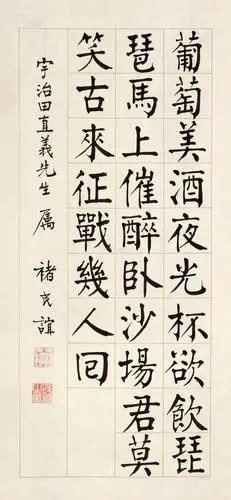 葡萄美酒夜光杯欲飲琵
琶馬上催醉臥沙場君莫
笑古來征戰幾人回
宇治田直義先生屬
褚民誼